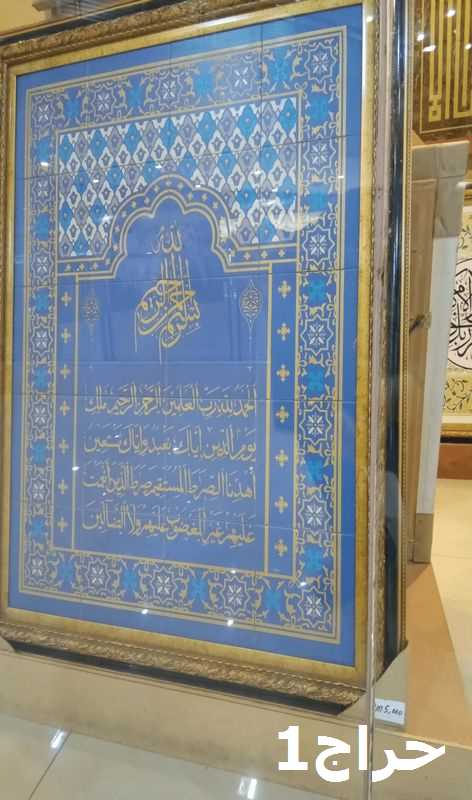 بسم الله الرحمن الرحيم
الحمد لله رب العلمين الرحمن الرحيم ملك
يوم الدين اياك نعبد واياك نستعين
اهدنا الصرط المستقيم صرط الذين انعمت
عليهم غير المغضوب عليهم ولا الضالين
RM5,000
حراج1